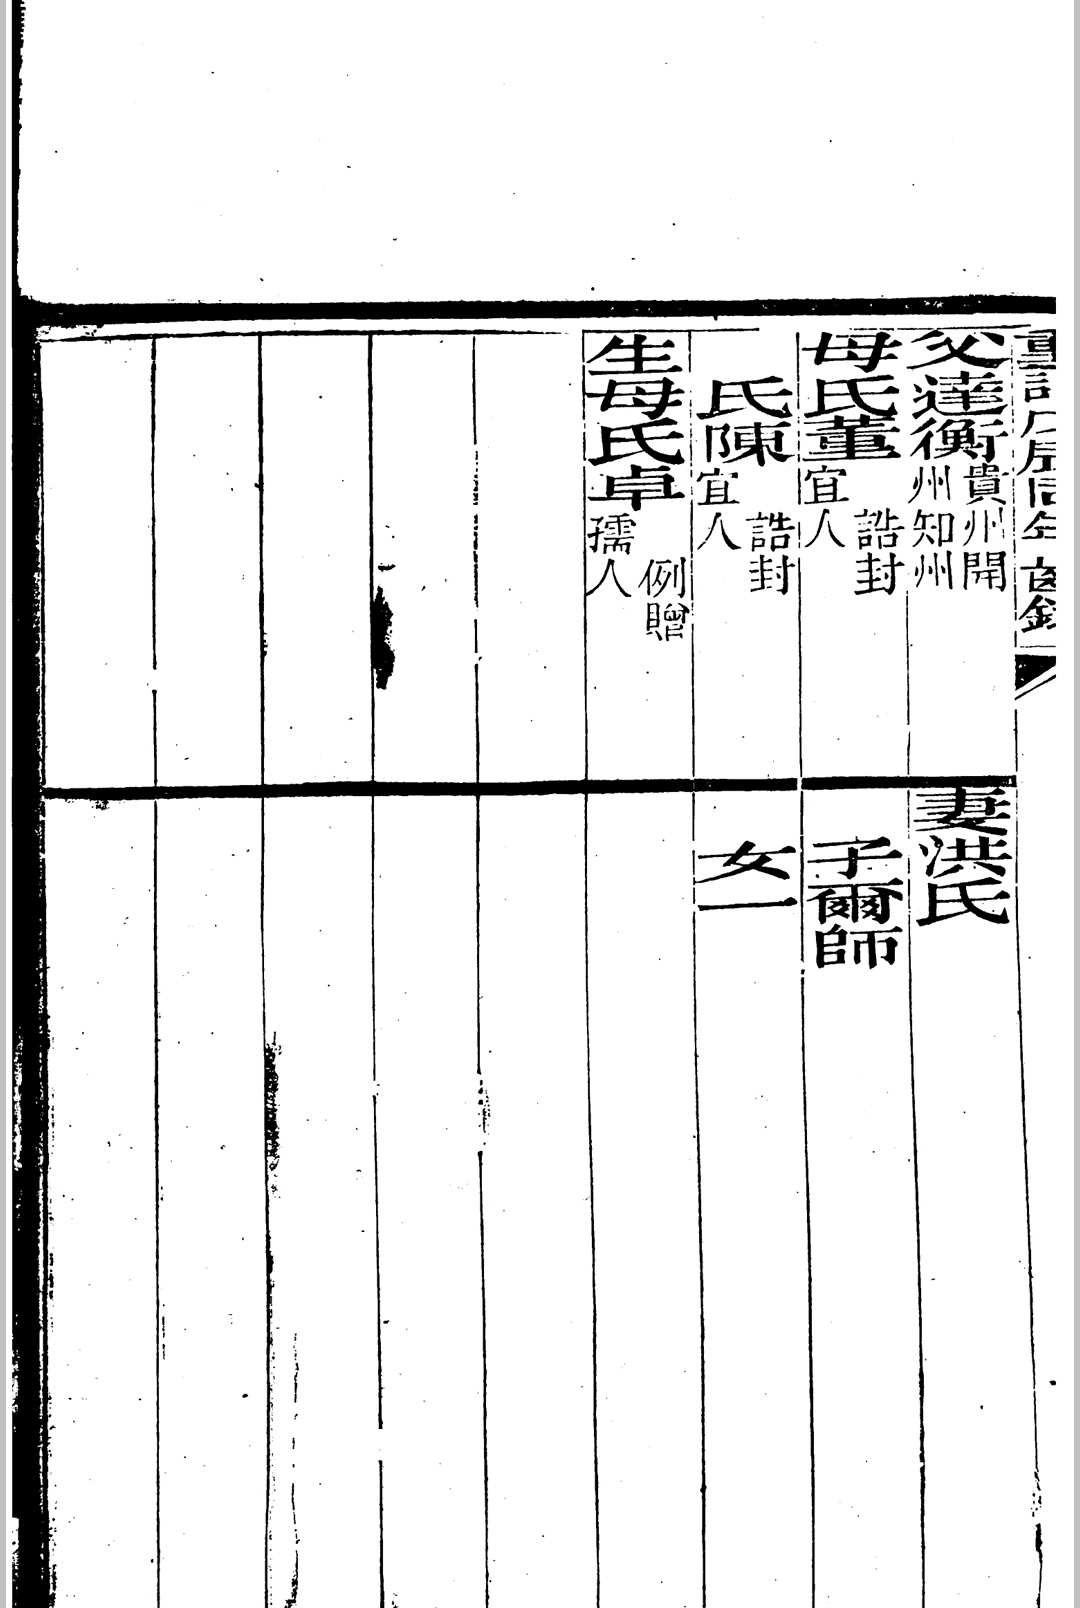 重訂戊辰同年齒錄
父達衡貴州開州知州
母氏董誥封宜人
氏陳誥封宜人
生母氏卓例贈孺人
妻洪氏
子爾師
女一